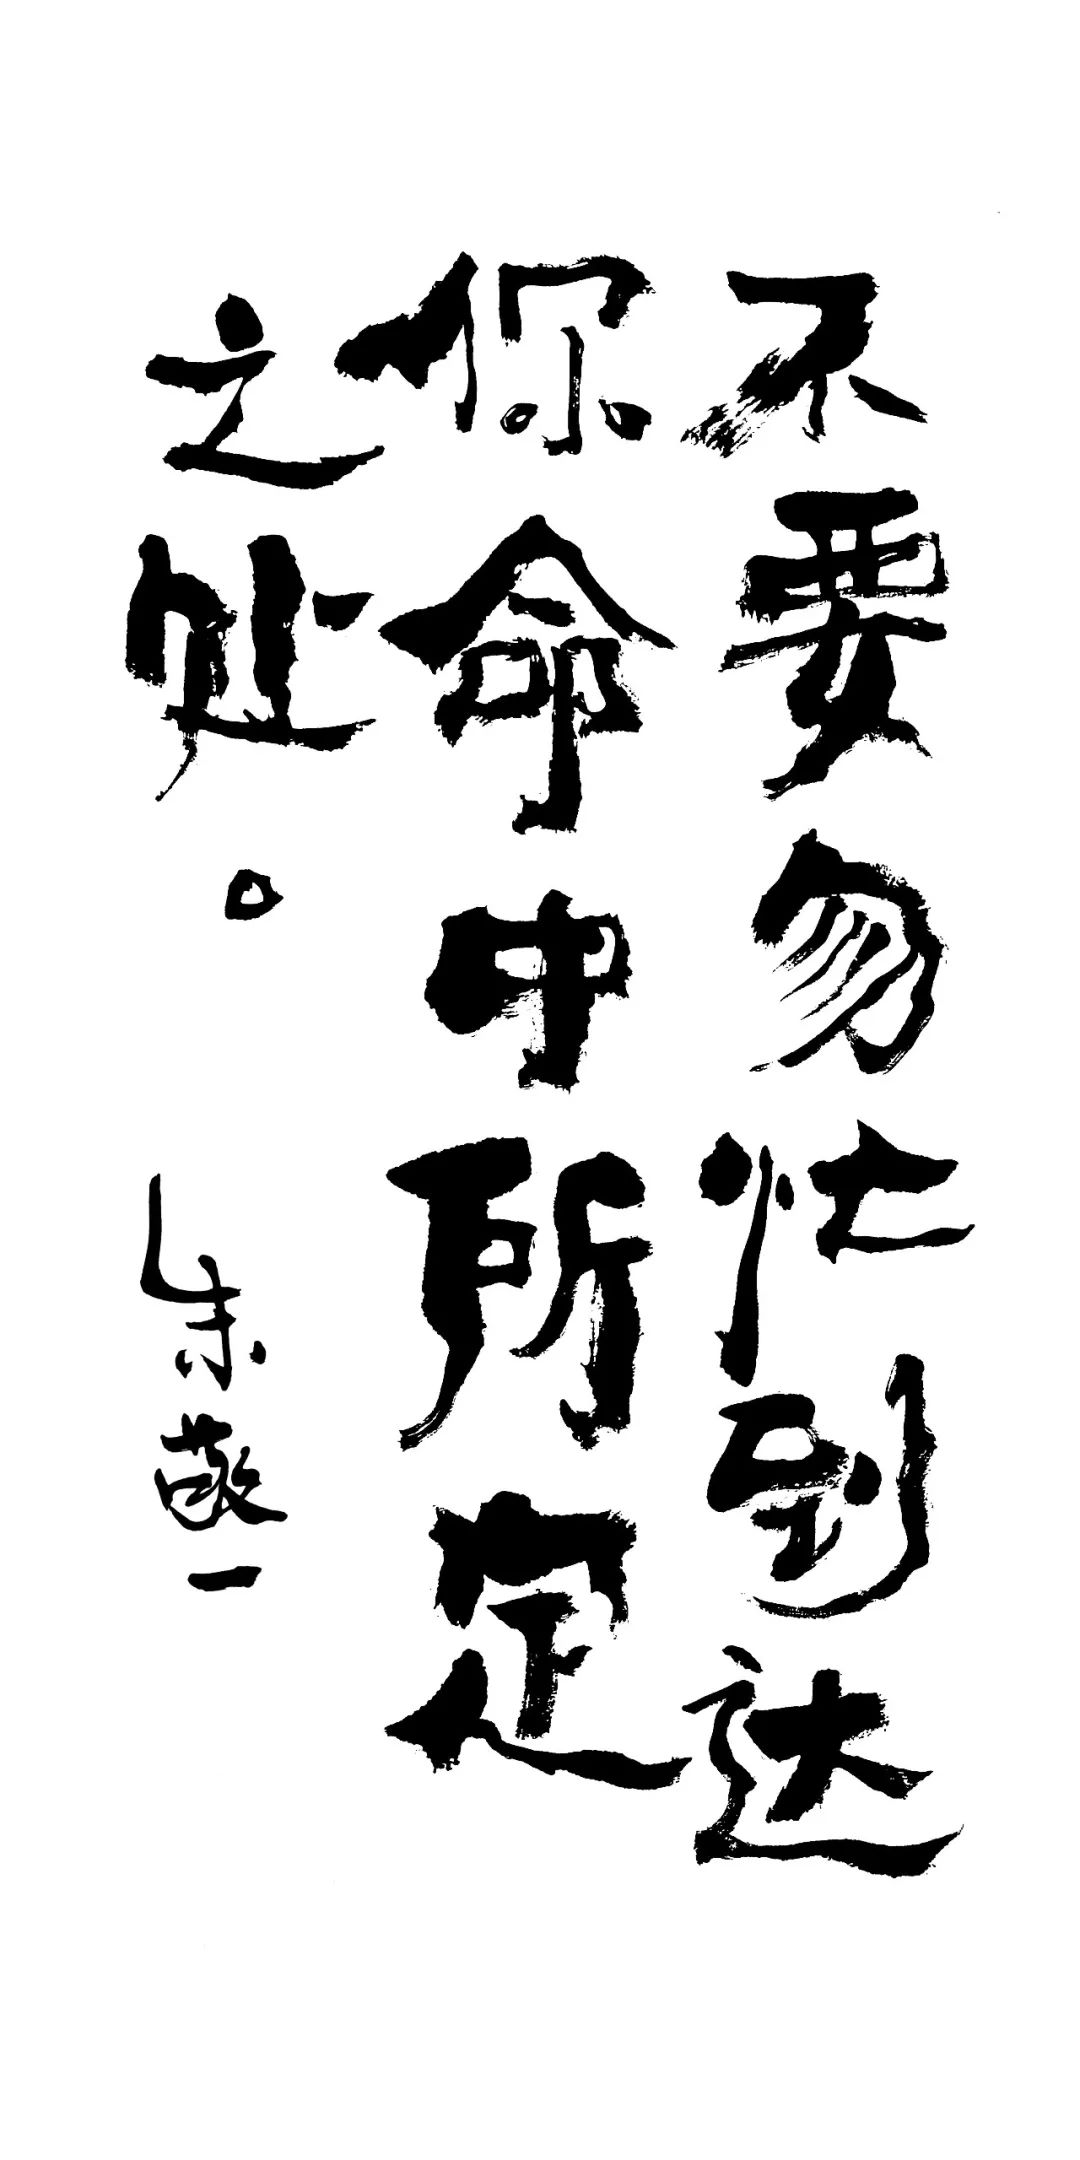 不要勿忙到达
你命中所定
之处。
朱敬一